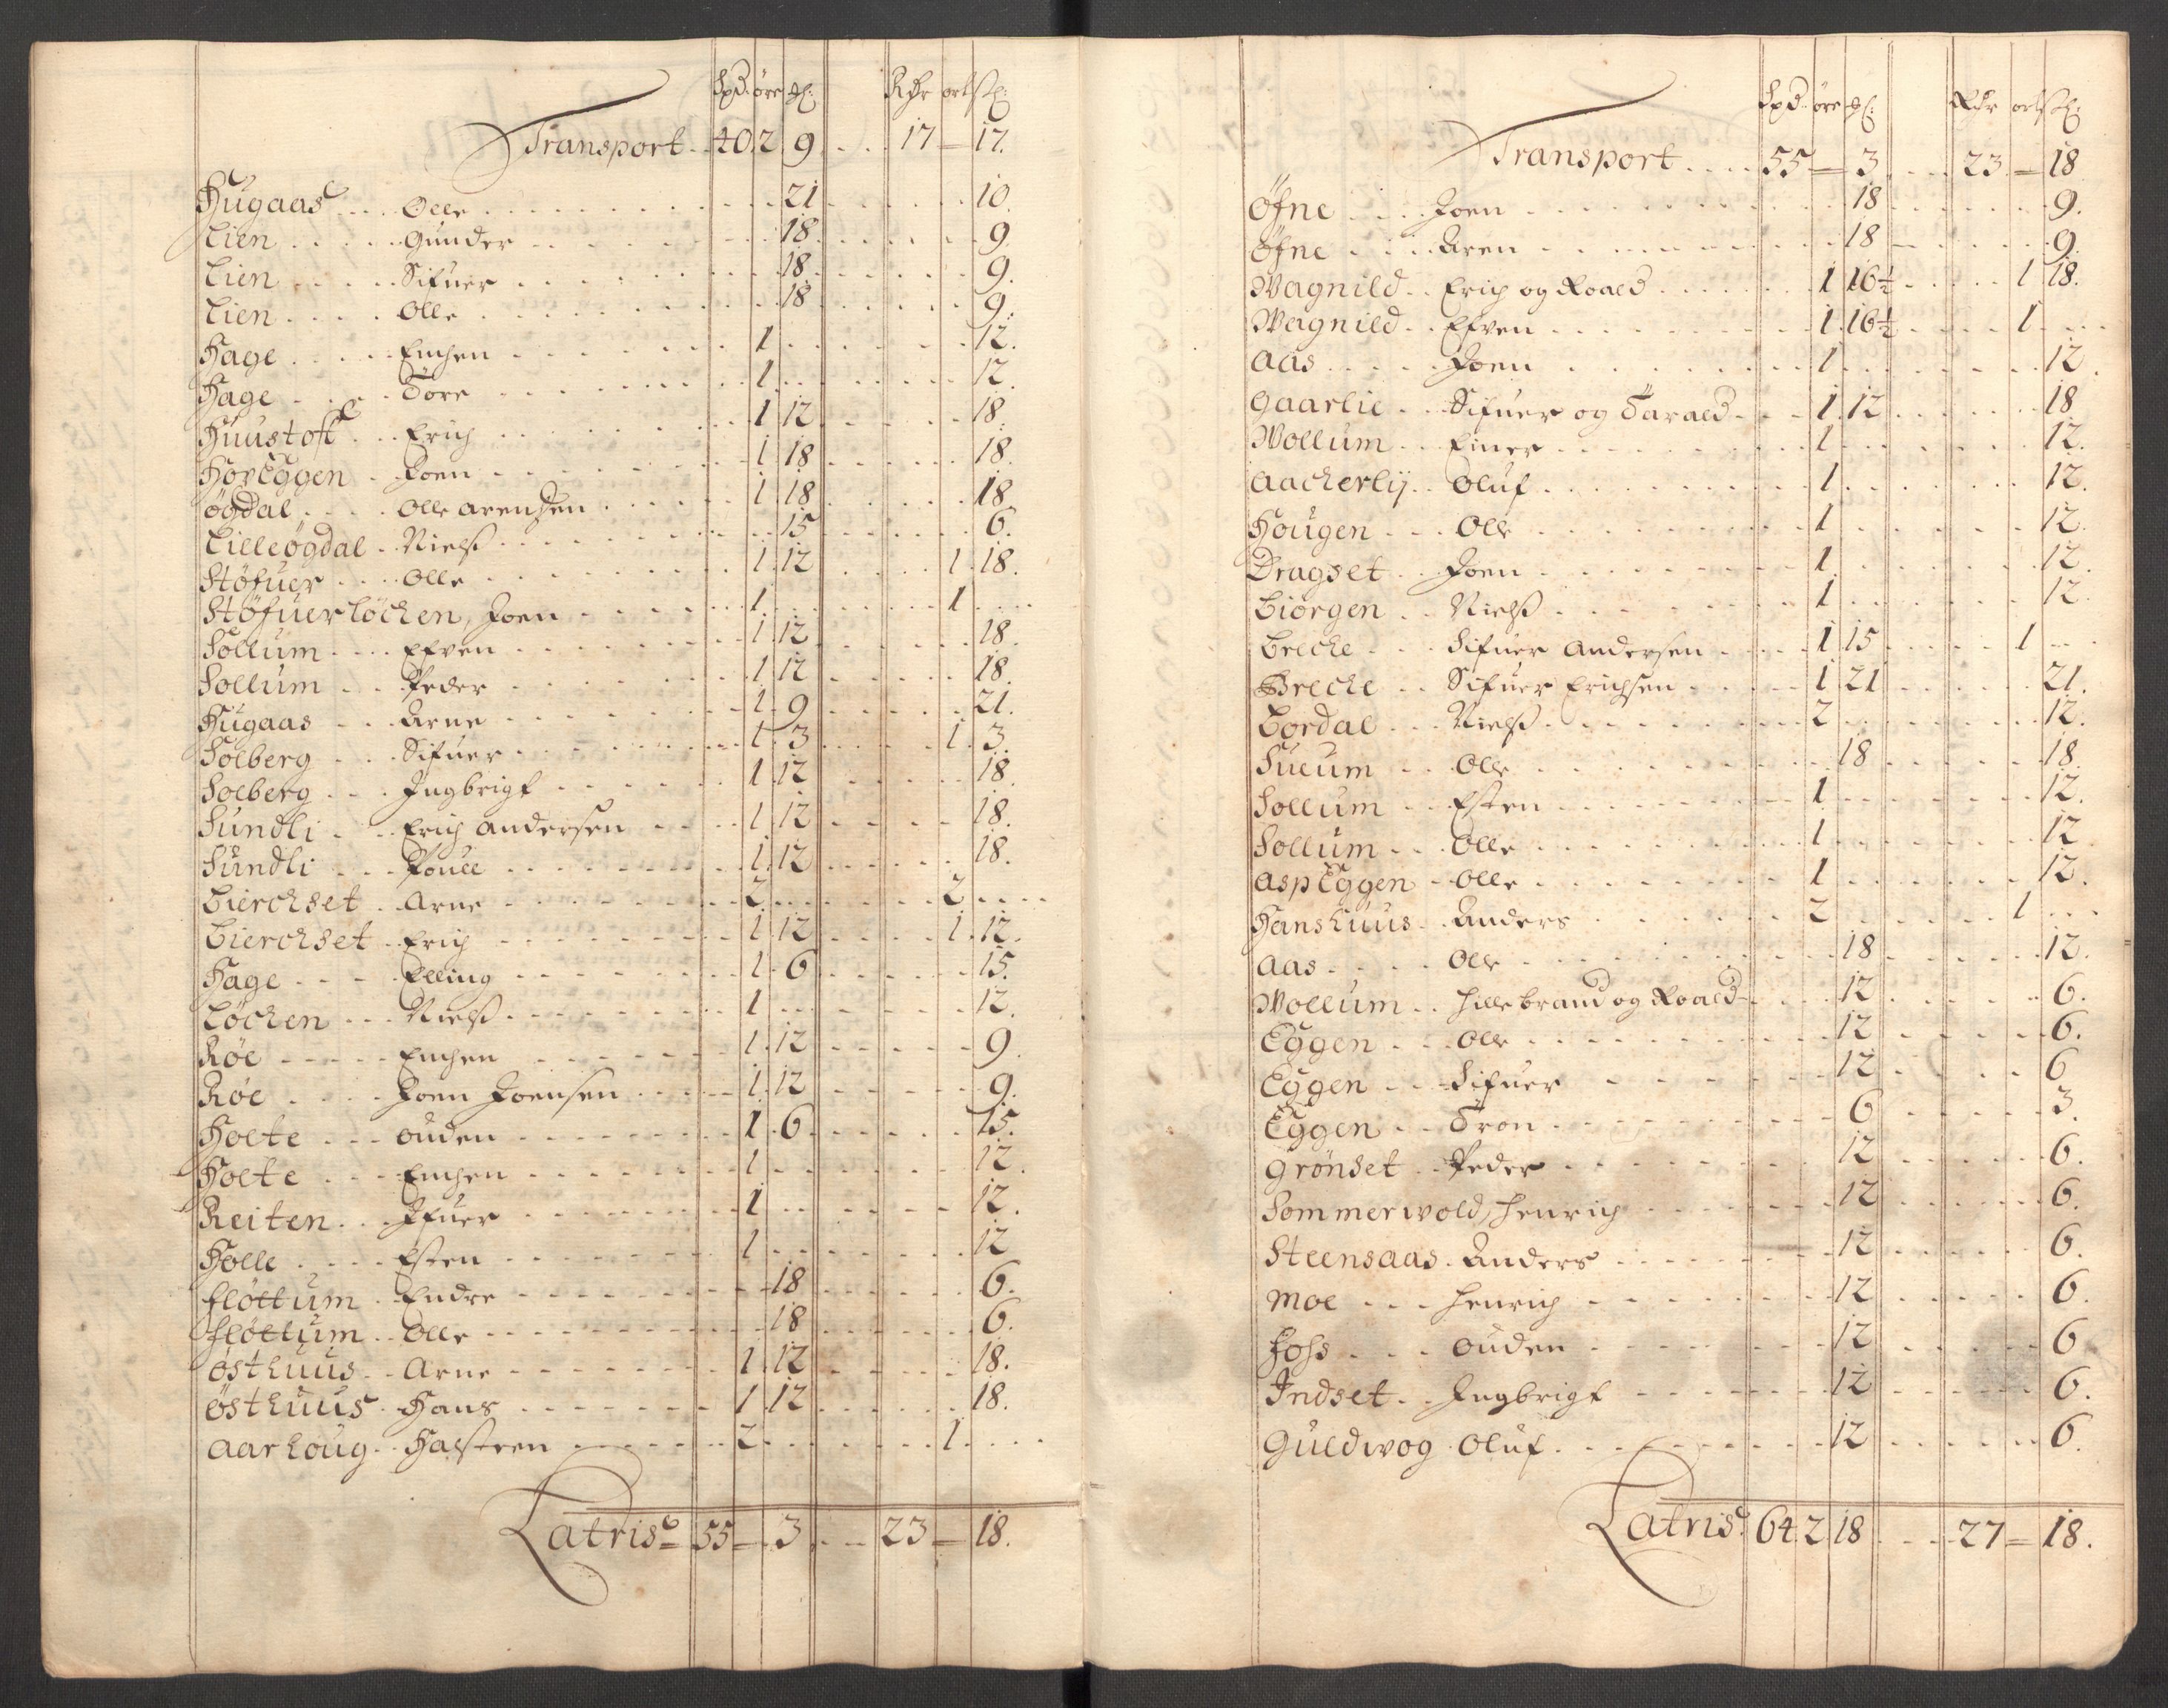 Spd. øre ... Rdr ort ...
Transport 40. 2 9 17 17.
Hugaas Olle 21 10.
Lien Gunder 18 9.
Lien Sifuer 18 9.
Lien Olle 18 9.
Hage Enchen 1 12.
Hage Tore 1 12.
Huustoft Erich 1 12 18.
HovEggen Joen 1 18 18.
øgdal Olle Arensen 1 18 18.
Lilleøgdal Nielß 15 6.
Støfuer Olle 1 12 1 18.
Støfuerløchen, Joen 1 1
Sollum Esven 1 12 18.
Sollum Peder 1 12 18.
Hugaas Arne 1 9 21.
Solberg Sifuer 1 3 1 3.
Solberg Ingbrigt 1 12 18.
Sundli Erich Andersen 1 12 18.
Sundli Pouel 1 12 18.
Bierchset Arne 2 2
Bierchset Erich 1 12 1 12.
Hage Elling 1 6 15.
Løchen Nielß 1 12.
Røe Enchen 1 12 9.
Røe Joen Joensen 1 12 9.
Holte Ouden 1 6 15.
Holte Enchen 1 12.
Reiten Ifuer 1 12.
Holle Esten 1 12
Fløttum Endre 18 6.
Fløttum Olle 18 6.
østhuus Arne 1 12 18.
østhuus Hans 1 12 18.
Aarhoug Halsteen 2 1
Latris 55 3 23 18.
Spd. øre ... Rdr ort ...
Transport 55 3 23 18
Øfne Joen 18 9.
Øfne Aren 18 9.
Wagnild Erich og Roald 1 16½ 1 18.
Wagnild Esven 1 16½ 1
Aas Joen 1 12.
Gaarlie Sifuer og Tarald 1 12 18
Wollum Einer 1 12.
Aacherlij Oluf 1 12.
Hougen Olle 1 12.
Dragset Joen 1 12.
Biørgen Nielß 1 12.
Breche Sifuer Andersen 1 15 1
Breche Sifuer Erichsen 1 21 21.
Bordal Nielß 2 12.
Suium Olle 18 18.
Sollum Esten 1 12.
Sollum Olle 1 12
AspEggen Olle 1 12.
Hanshuus Anders 2 1
Aas Olle 18 12.
Wollum Hillebrand og Roald 12 6.
Eggen Olle 12 6.
Eggen Sifuer 12 6
Eggen Tron 6 3.
Grønset Peder 12 6.
Sommerwold, Henrich 12 6.
Steensaas Anders 12 6.
Moe Henrich 12 6.
Foss Ouden 12 6
Indset Ingbrigt 12 6.
Guldwog Oluf 12 6.
Latris 64. 2 18 27 18.